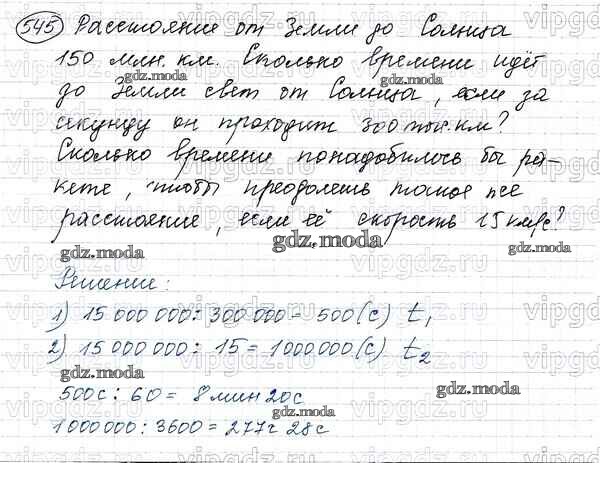 545 Расстояние от Земли до Солнца
150 млн. км. Сколько времени идёт
до Земли свет от Солнца, если за
секунду он проходит 300 тыс. км?
Сколько времени понадобилось бы ра-
кете, чтобы преодолеть такое же
расстояние, если её скорость 15 км/с?
Решение:
1) 15 000 000 : 300 000 = 500 (с) t1
2) 15 000 000 : 15 = 1000000 (с) t2
500с : 60 = 8 мин 20с
1000000 : 3600 = 277ч 28с
gdz.moda
vipgdz.ru